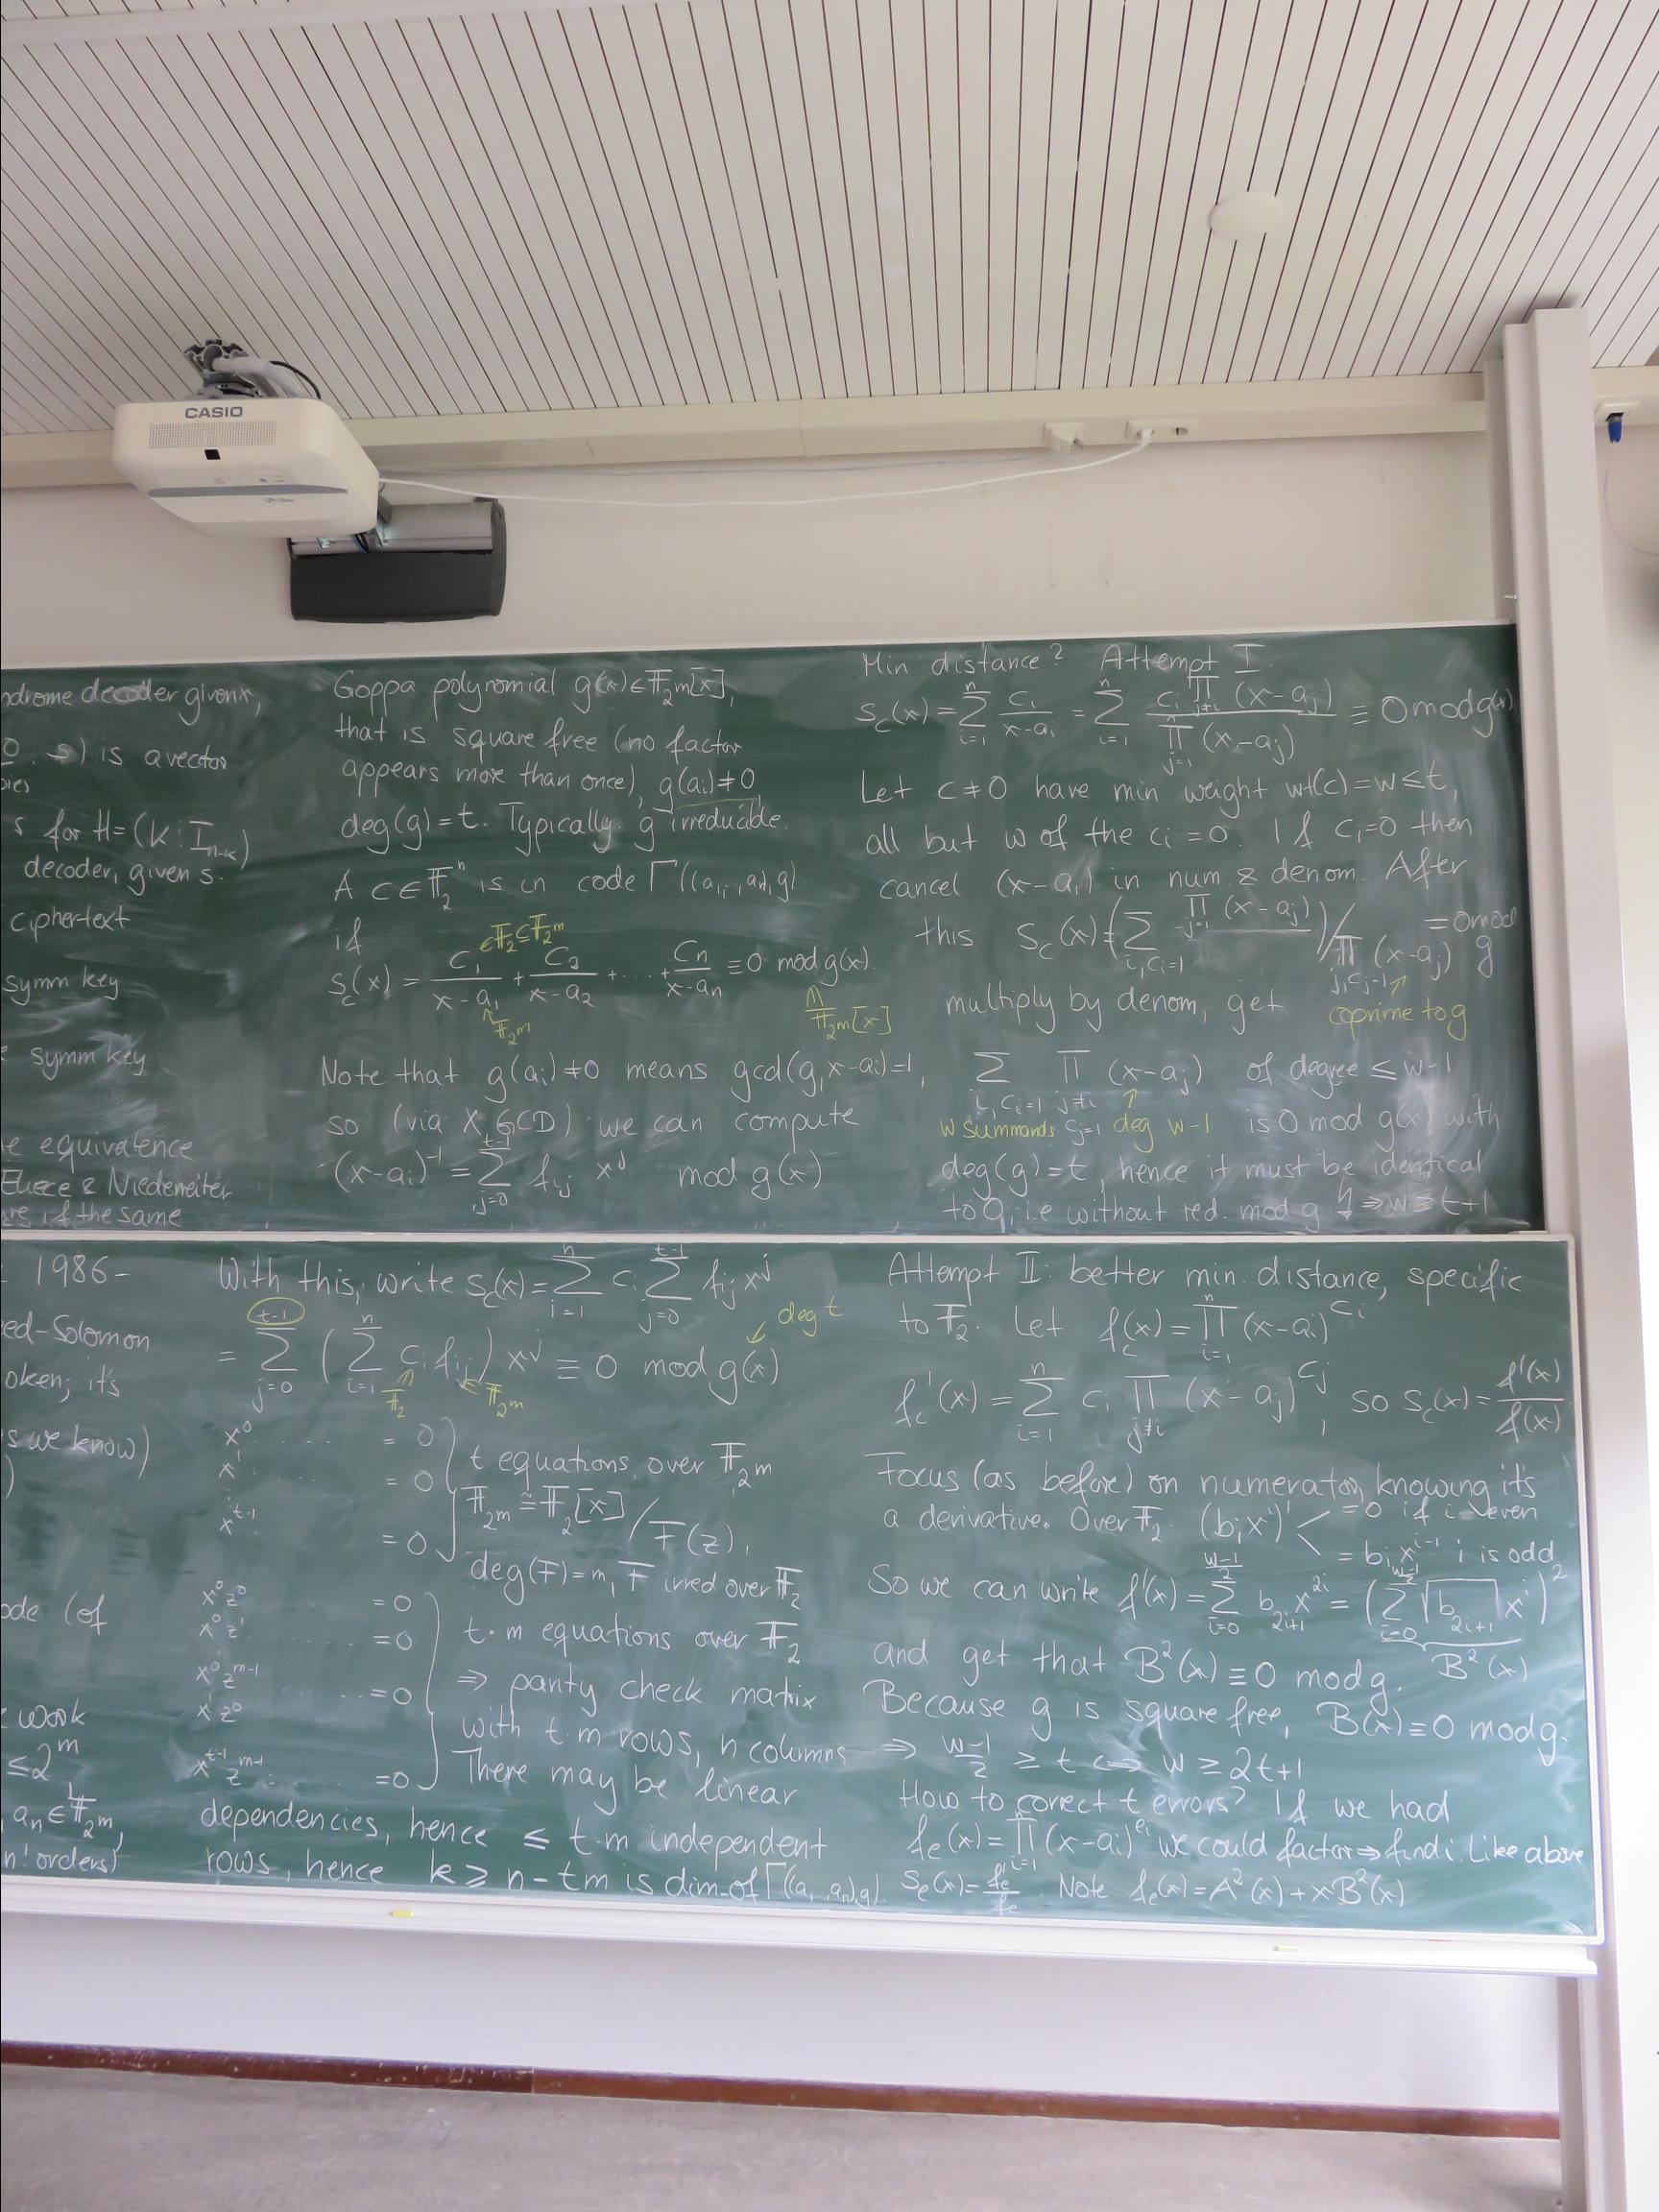 CASIO
ndrome decoder given x,
0. s) is a vector
s for H=(K : I_{n-k})
decoder, given s.
ciphertext
symm key
symm key
e equivalence
& Niederreiter
are if the same
Goppa polynomial g(x)∈𝔽_{2^m}[x],
that is square free (no factor
appears more than once), g(a_i)≠0,
deg(g)=t. Typically g irreducible.
A c∈𝔽_2^n is in code Γ((a_1,..,a_n),g)
if
∈𝔽_2⊆𝔽_{2^m}
S_c(x) = c_1/(x-a_1) + c_2/(x-a_2) + ... + c_n/(x-a_n) ≡ 0 mod g(x).
𝔽_{2^m}
𝔽_{2^m}[x]
Note that g(a_i)≠0 means gcd(g,x-a_i)=1,
so (via XGCD) we can compute
(x-a_i)^{-1} = ∑_{j=0}^{t-1} f_{ij} x^j mod g(x)
Min distance? Attempt I.
S_c(x) = ∑_{i=1}^n c_i/(x-a_i) = ∑_{i=1}^n c_i ∏_{j≠i} (x-a_j) / ∏_{j=1}^n (x-a_j) ≡ 0 mod g(x)
Let c≠0 have min weight wt(c)=w≤t,
all but w of the c_i=0. If c_i=0 then
cancel (x-a_i) in num & denom. After
this S_c(x)=(∑_{i,c_i=1} ∏ (x-a_j)) / ∏_{j,c_j=1} (x-a_j) =0 mod g
multiply by denom, get
coprime to g
∑_{i,c_i=1} ∏_{j≠i, c_j=1} (x-a_j) of degree ≤w-1
w summands deg w-1 is 0 mod g(x) with
deg(g)=t, hence it must be identical
to 0, i.e without red. mod g ↯ ⇒ w≥t+1
1986-
ed-Solomon
oken; it's
s we know)
)
ode (of
work
≤2^m
a_n∈𝔽_{2^m},
n! orders)
With this, write S_c(x)=∑_{i=1}^n c_i ∑_{j=0}^{t-1} f_{ij} x^j
deg t
= ∑_{j=0}^{t-1} (∑_{i=1}^n c_i f_{ij}) x^j ≡ 0 mod g(x)
𝔽_2 ∈𝔽_{2^m}
x^0 .... = 0
x^1 = 0
x^{t-1} = 0
t equations over 𝔽_{2^m}
𝔽_{2^m} ≅ 𝔽_2[x]/F(z),
deg(F)=m, F irred over 𝔽_2
x^0z^0 =0
x^0z^1 ...... =0
x^0z^{m-1} ...... =0
x^1z^0
x^{t-1}z^{m-1} ...... =0
t·m equations over 𝔽_2
⇒ parity check matrix
with t·m rows, n columns
There may be linear
dependencies, hence ≤ t·m independent
rows, hence k ≥ n-tm is dim of Γ((a_1,..,a_n),g)
Attempt II: better min. distance, specific
to 𝔽_2. Let f_c(x) = ∏_{i=1}^n (x-a_i)^{c_i}
f_c'(x) = ∑_{i=1}^n c_i ∏_{j≠i} (x-a_j)^{c_j}, so S_c(x) = f'(x)/f(x)
Focus (as before) on numerator, knowing it's
a derivative. Over 𝔽_2. (b_i x^i)' < =0 if i even
= b_i x^{i-1} i is odd
So we can write f'(x) = ∑_{i=0}^{(w-1)/2} b_{2i+1} x^{2i} = (∑_{i=0}^{(w-1)/2} √b_{2i+1} x^i)^2
and get that B^2(x) ≡ 0 mod g. B^2(x)
Because g is square free, B(x)≡0 mod g.
⇒ (w-1)/2 ≥ t ⇔ w ≥ 2t+1
How to correct t errors? If we had
f_e(x) = ∏_{i=1}^n (x-a_i)^{e_i} we could factor ⇒ find i. Like above
S_e(x) = f_e'/f_e. Note f_e(x) = A^2(x)+xB^2(x)